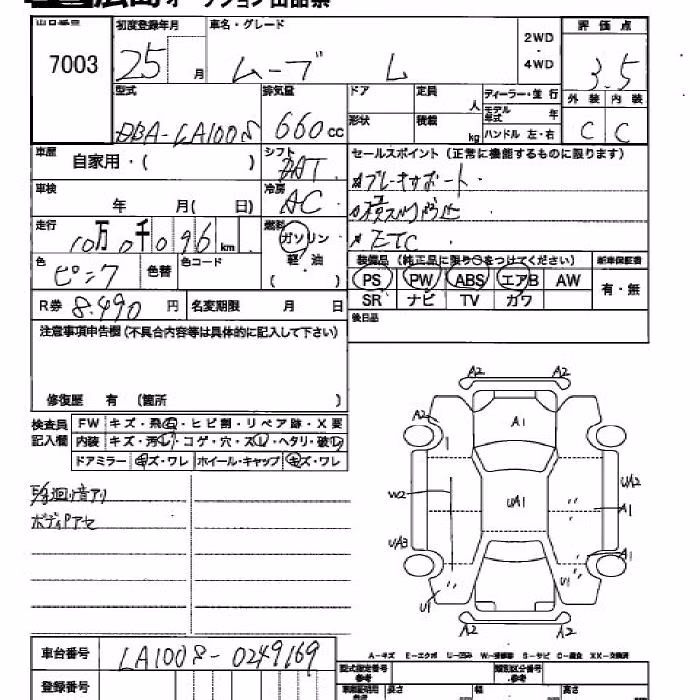 広島 オークション出品票
出品番号 初度登録年月 車名・グレード 2WD ・ 4WD 評価点
7003 25 月 ムーブ L 3.5
型式 排気量 ドア 定員 人 ディーラー・並行 外装 内装
DBA-LA100S 660 cc 形状 積載 kg モデル年式 年 C C
ハンドル 左・右
車歴 自家用・( ) シフト セールスポイント (正常に機能するものに限ります)
車検 年 月( 日) 冷房 AC
走行 10万0千096 km 燃料 ガソリン 軽油 ( ) ETC
色 ピンク 色替 色コード 装備品 (純正品に限り○をつけてください) 新車保証書
PS PW ABS エアB AW 有・無
R券 8.490 円 名変期限 月 日 SR ナビ TV カワ
注意事項申告欄 (不具合内容等は具体的に記入して下さい) 後日品
修復歴 有 (箇所 )
検査員記入欄 FW キズ・飛石・ヒビ割・リペア跡・X要
内装 キズ・汚レ・コゲ・穴・スレ・ヘタリ・破レ
ドアミラー キズ・ワレ ホイール・キャップ キズ・ワレ
廻り音アリ
ボディPアセ
A2 A2
A2 A1
W2 UA1 UA2
A1
UA3 A1
U1 U1
A2 A2
A-キズ E-エクボ U-凹み W-補修跡 S-サビ C-腐食 XX-交換済
車台番号 LA100S-0249169
登録番号 型式指定番号 参考 類別区分番号 参考
長さ 幅 高さ